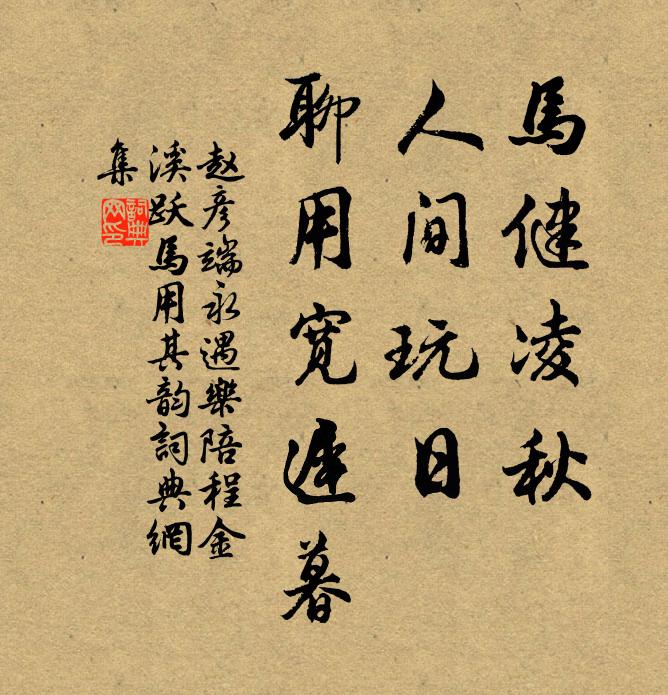 馬健凌秋
人間玩日
聊用寬遲暮
赵彥端永遇樂陪程金
溪跃馬用其韵詞典網
集
詞典网印